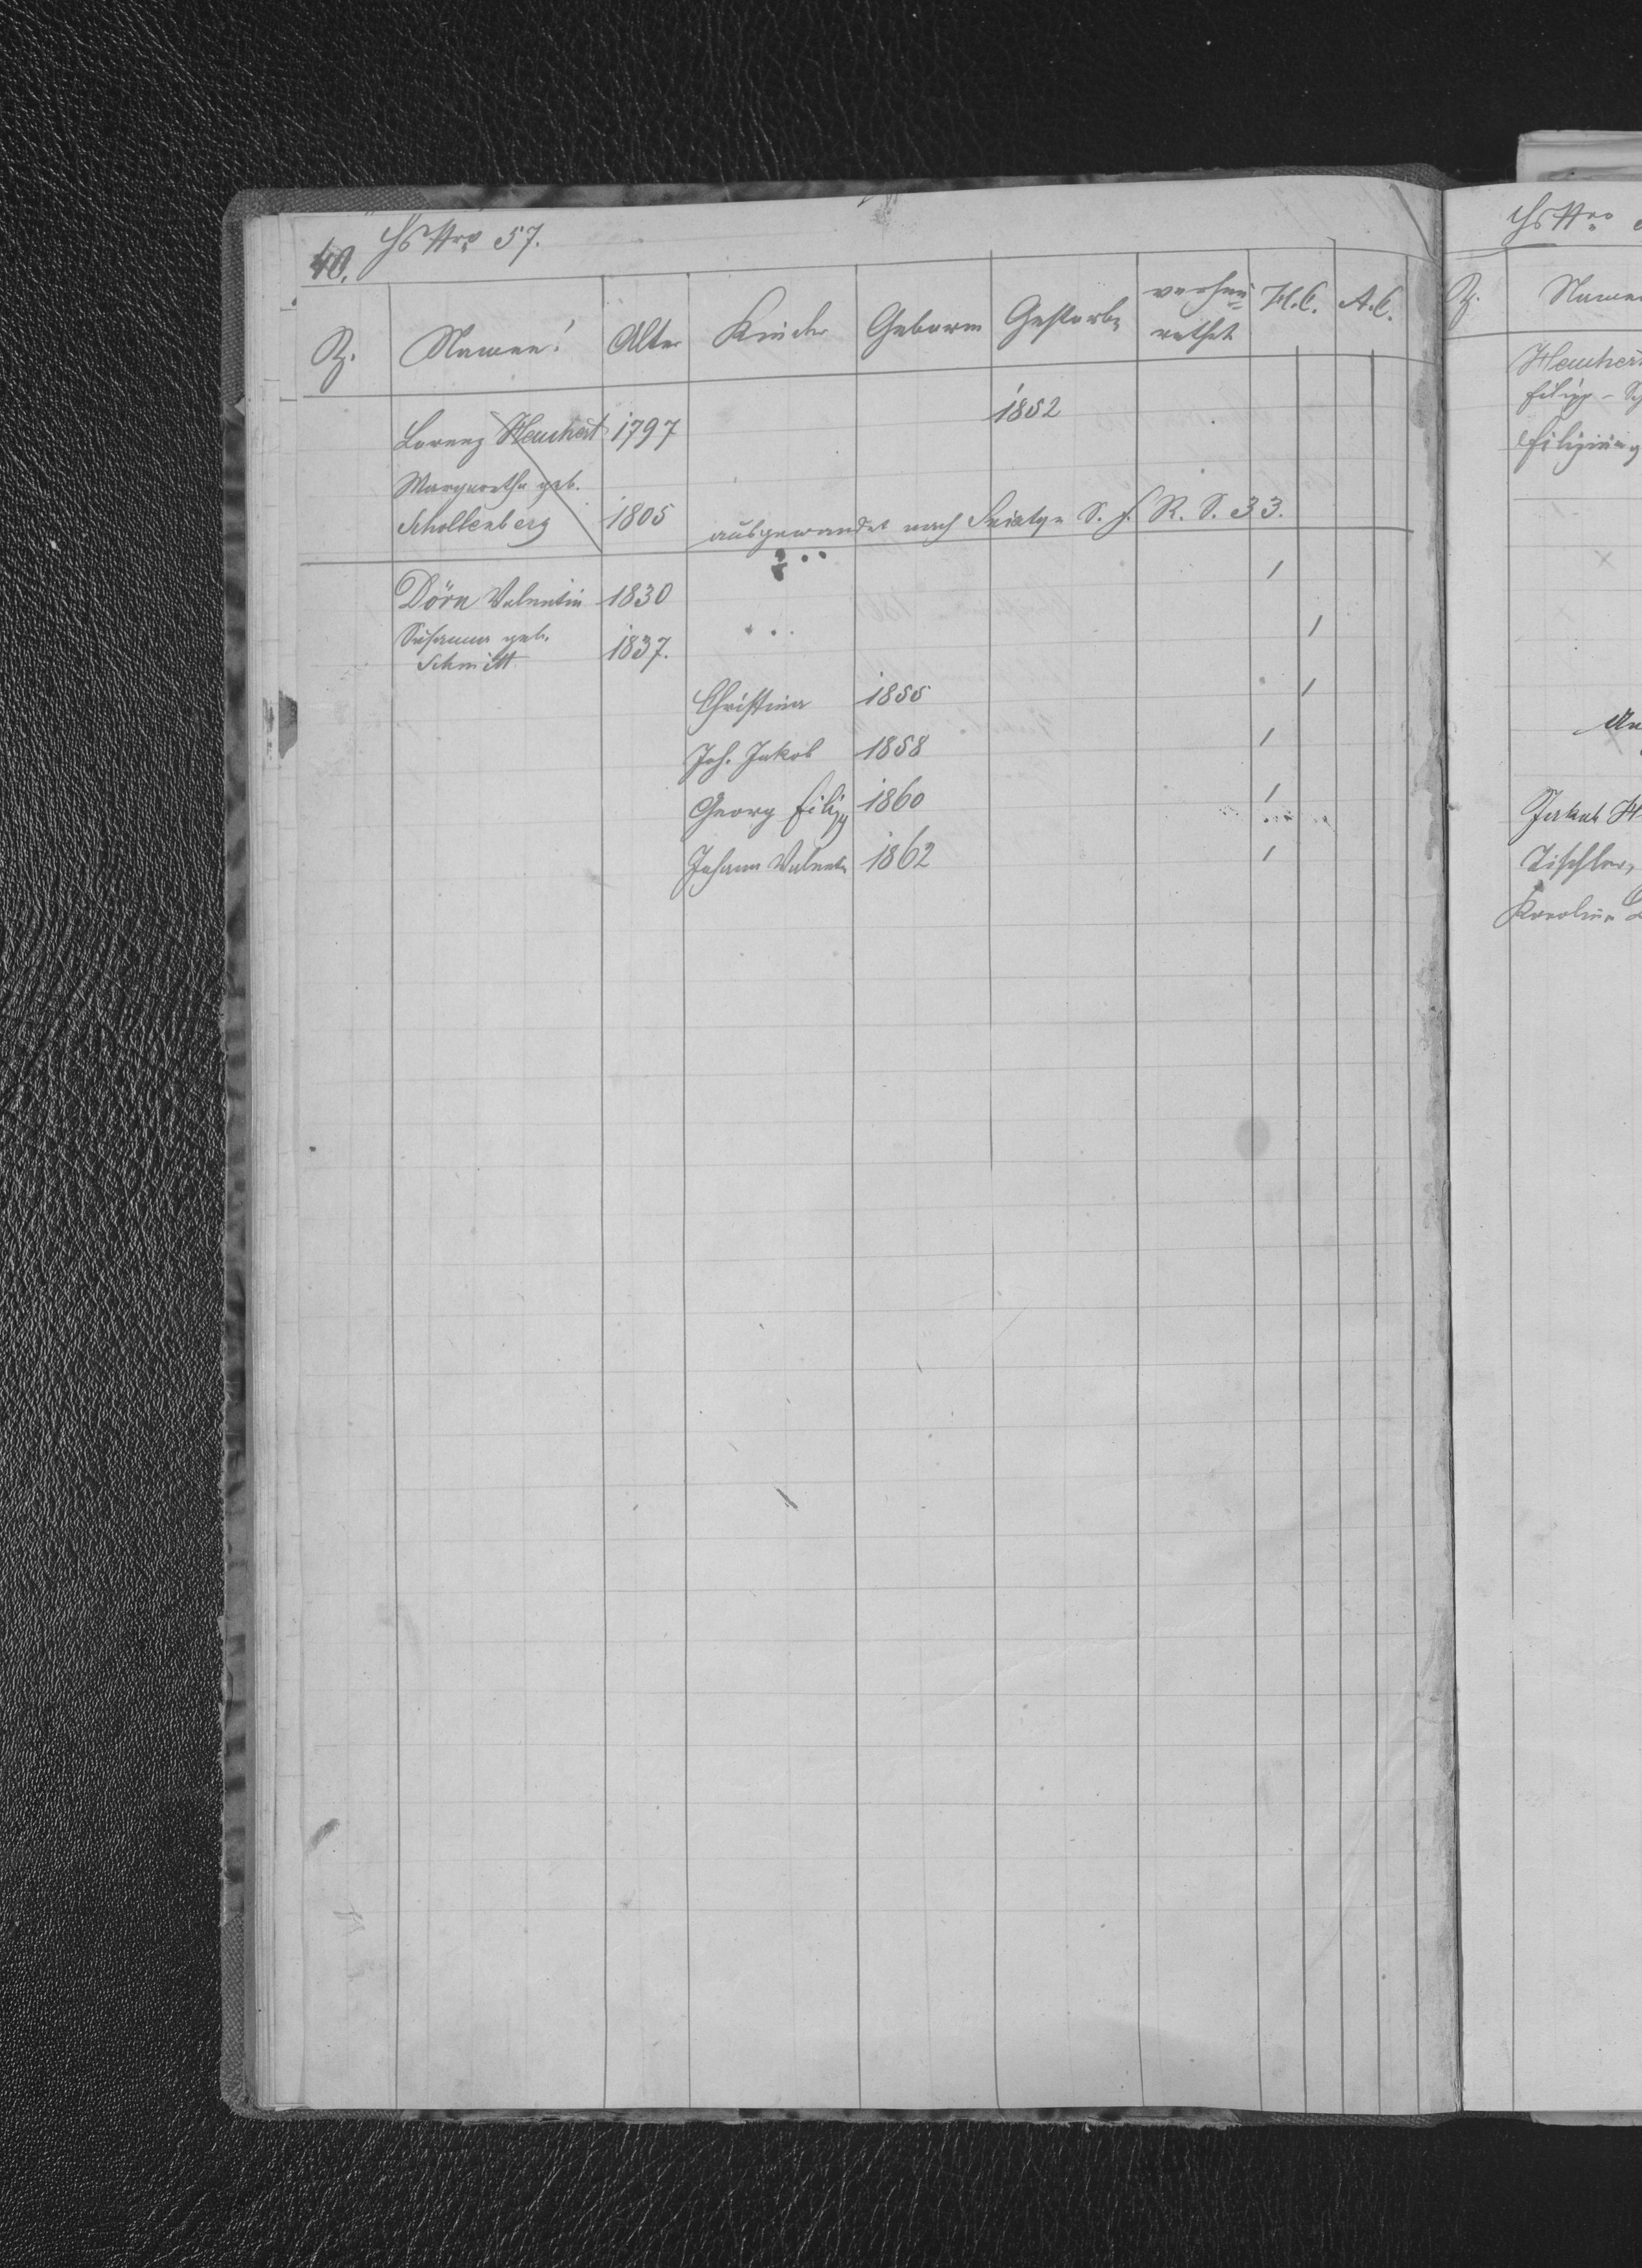 40. Hs Nro 57.
Z. Namen Alter Kinder Geboren Gestorben verheu= H.C. A.C.
rathet
Lorenz Heuchert 1797 1852
Margaretha geb.
Schollenberg 1805 ausgewandert nach S. f. R. S. 33.
Dörn Valentin 1830
Susanna geb.
Schmitt 1837.
Christina 1855
Joh. Jakob 1858
Georg Filipp 1860
Johann Valentin 1862
Hs Nro
Z. Namen
Heuchert
Filipp
Jakob H
Tischler,